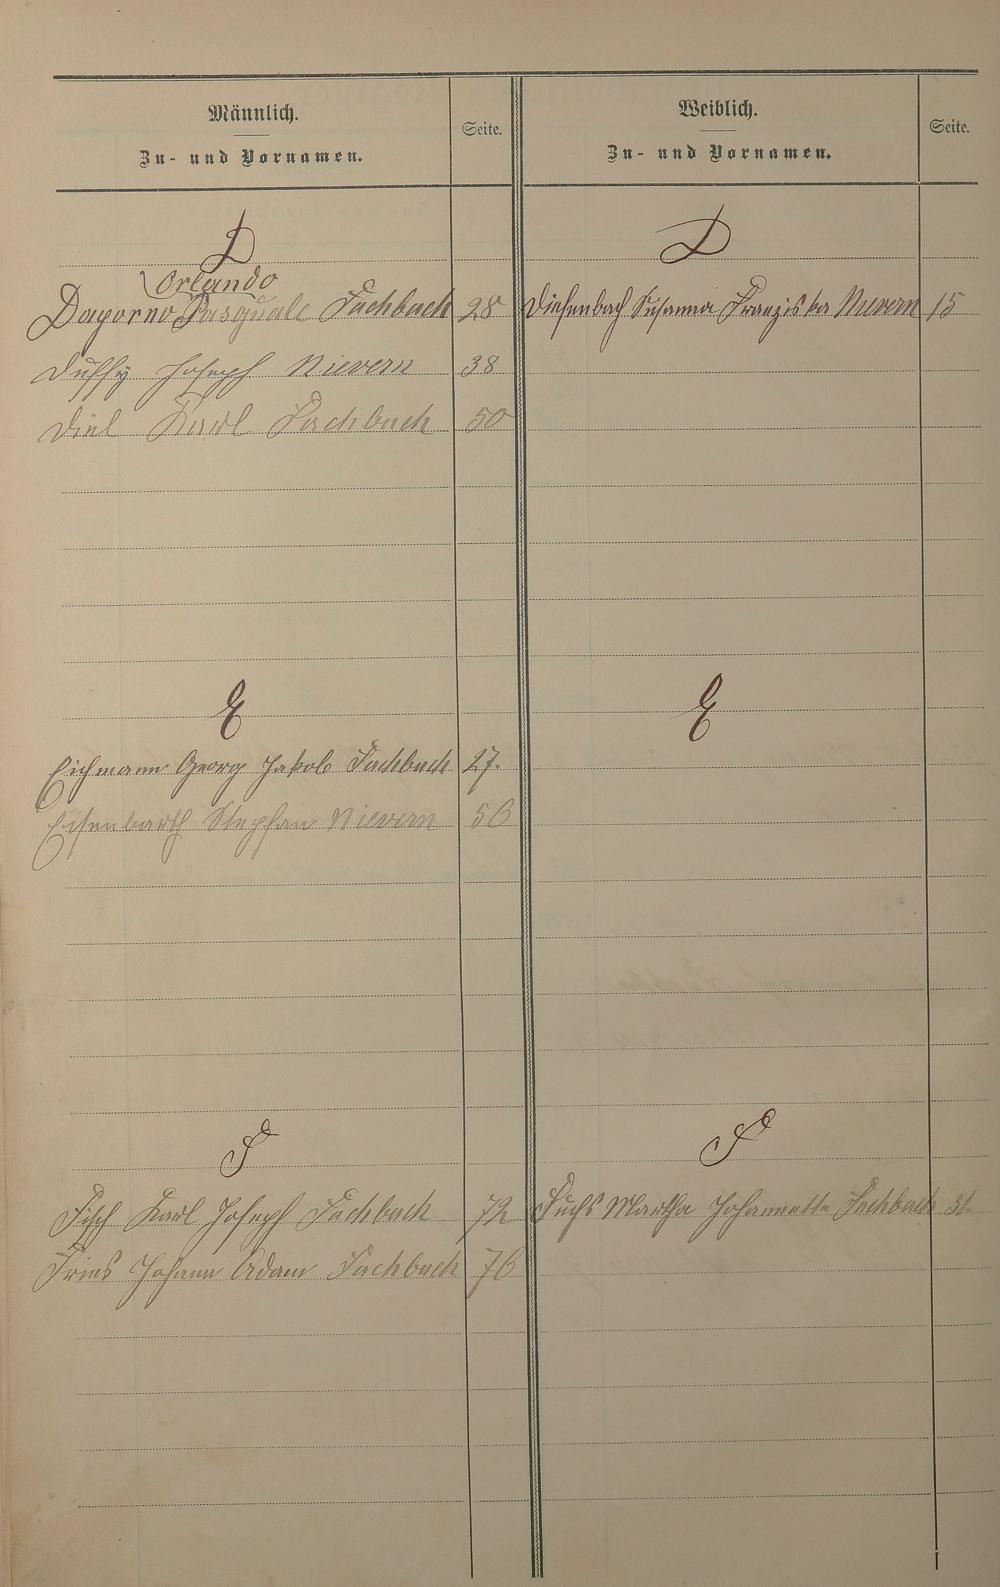 Männlich.
Zu- und Vornamen.
Seite.
D
Orlando
Daporno Pasquale Fachbach 28
Duffy Joseph Nievern 38
Diel Karl Fachbach 50
E
Eichmann Georg Jakob Fachbach 27.
Eisenbarth Stephan Nievern 56
F
Fisch Karl Joseph Fachbach 72
Fries Johann Adam Fachbach 76
Weiblich.
Zu- und Vornamen.
Seite.
D
Diefenbach Susanna Franziska Nievern 15
E
F
Fuchs Martha Johannette Fachbach 31.